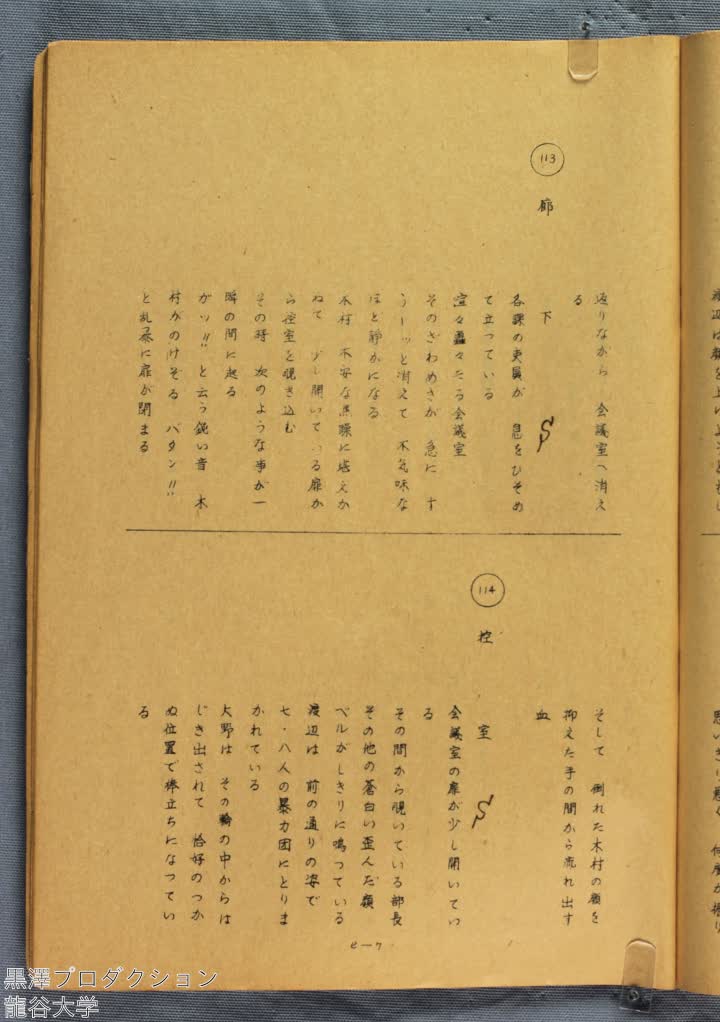 返りながら 会議室へ消え
る
113 廊下
各課の吏員が 息をひそめ
て立つている
喧々轟々たる会議室
そのざわめきが 急に す
うーッと消えて 不気味な
ほど静かになる
木村 不安な焦躁に堪えか
ねて 少し開いている扉か
ら控室を覗き込む
その時 次のような事が一
瞬の間に起る
ガッ!! と云う鈍い音 木
村がのけぞる バタン!!
と乱暴に扉が閉まる
そして 倒れた木村の顔を
抑えた手の間から流れ出す
血
114 控室
会議室の扉が少し開いてい
る
その間から覗いている部長
その他の蒼白い歪んだ顔
ベルがしきりに鳴つている
渡辺は 前の通りの姿で
七・八人の暴力団にとりま
かれている
大野は その輪の中からは
じき出されて 恰好のつか
ぬ位置で棒立ちになつてい
る
e—7
黒澤プロダクション
龍谷大学